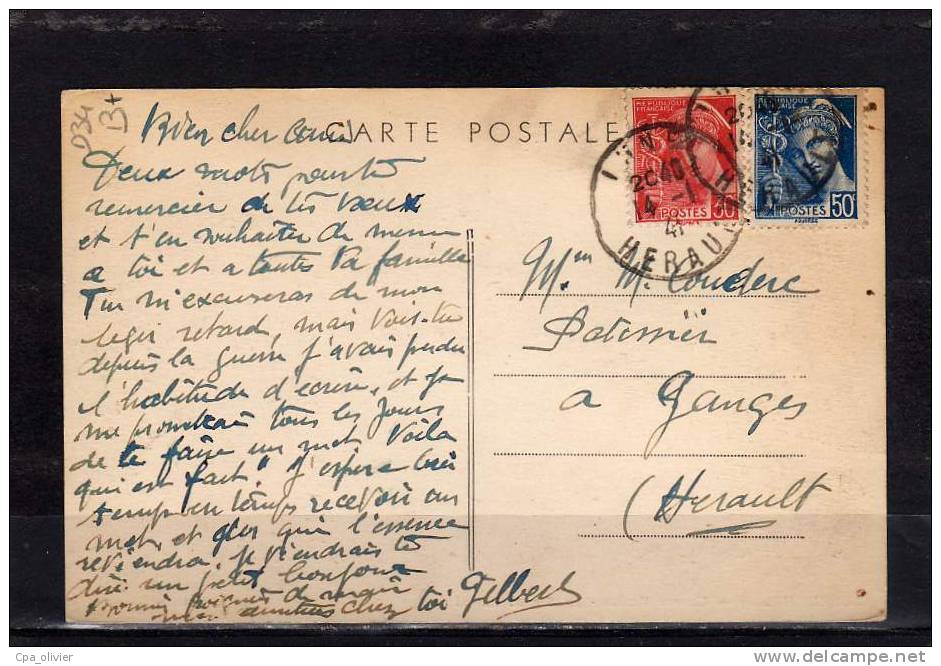 D34
B+
CARTE POSTALE
Bien cher
Deux mots pour te
remercier de tes voeux
et t'en souhaiter de meme
a toi et a toutes ta famille
Tu m'excuseras de mon
leger retard, mais vois-tu
depuis la guerre j'avais perdu
l'habitude d'ecrire, et je
me promettais tous les jours
de te faire un mot. Voila
qui est fait. J'espere
temps en temps recevoir un
mot, et des que l'essence
reviendra, je viendrais te
dire un petit bonjour
Bonnes poignées de main
chez toi Gilbert
REPUBLIQUE FRANÇAISE
POSTES
30c
REPUBLIQUE FRANÇAISE
POSTES
50c
20 40
4 -1
41
HERAULT
Mr M. Couderc
Patissier
a Ganges
(Herault
Cpa_olivier
delcampe.net